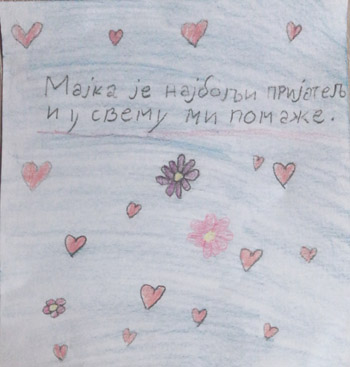 Мајка је најбољи пријатељ
и у свему ми помаже.